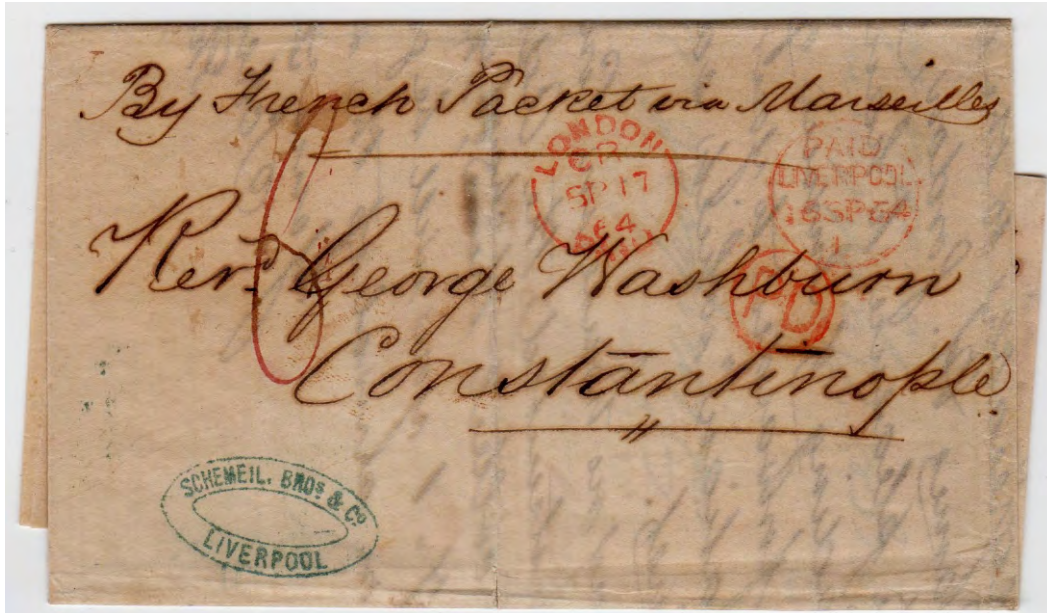 By French Packet via Marseilles
LONDON
CR
SP 17
64
PAID
PAID
LIVERPOOL
16 SP 64
1
6
Revd. George Washburn
PD
Constantinople
SCHEMEIL. BROS & Co
LIVERPOOL